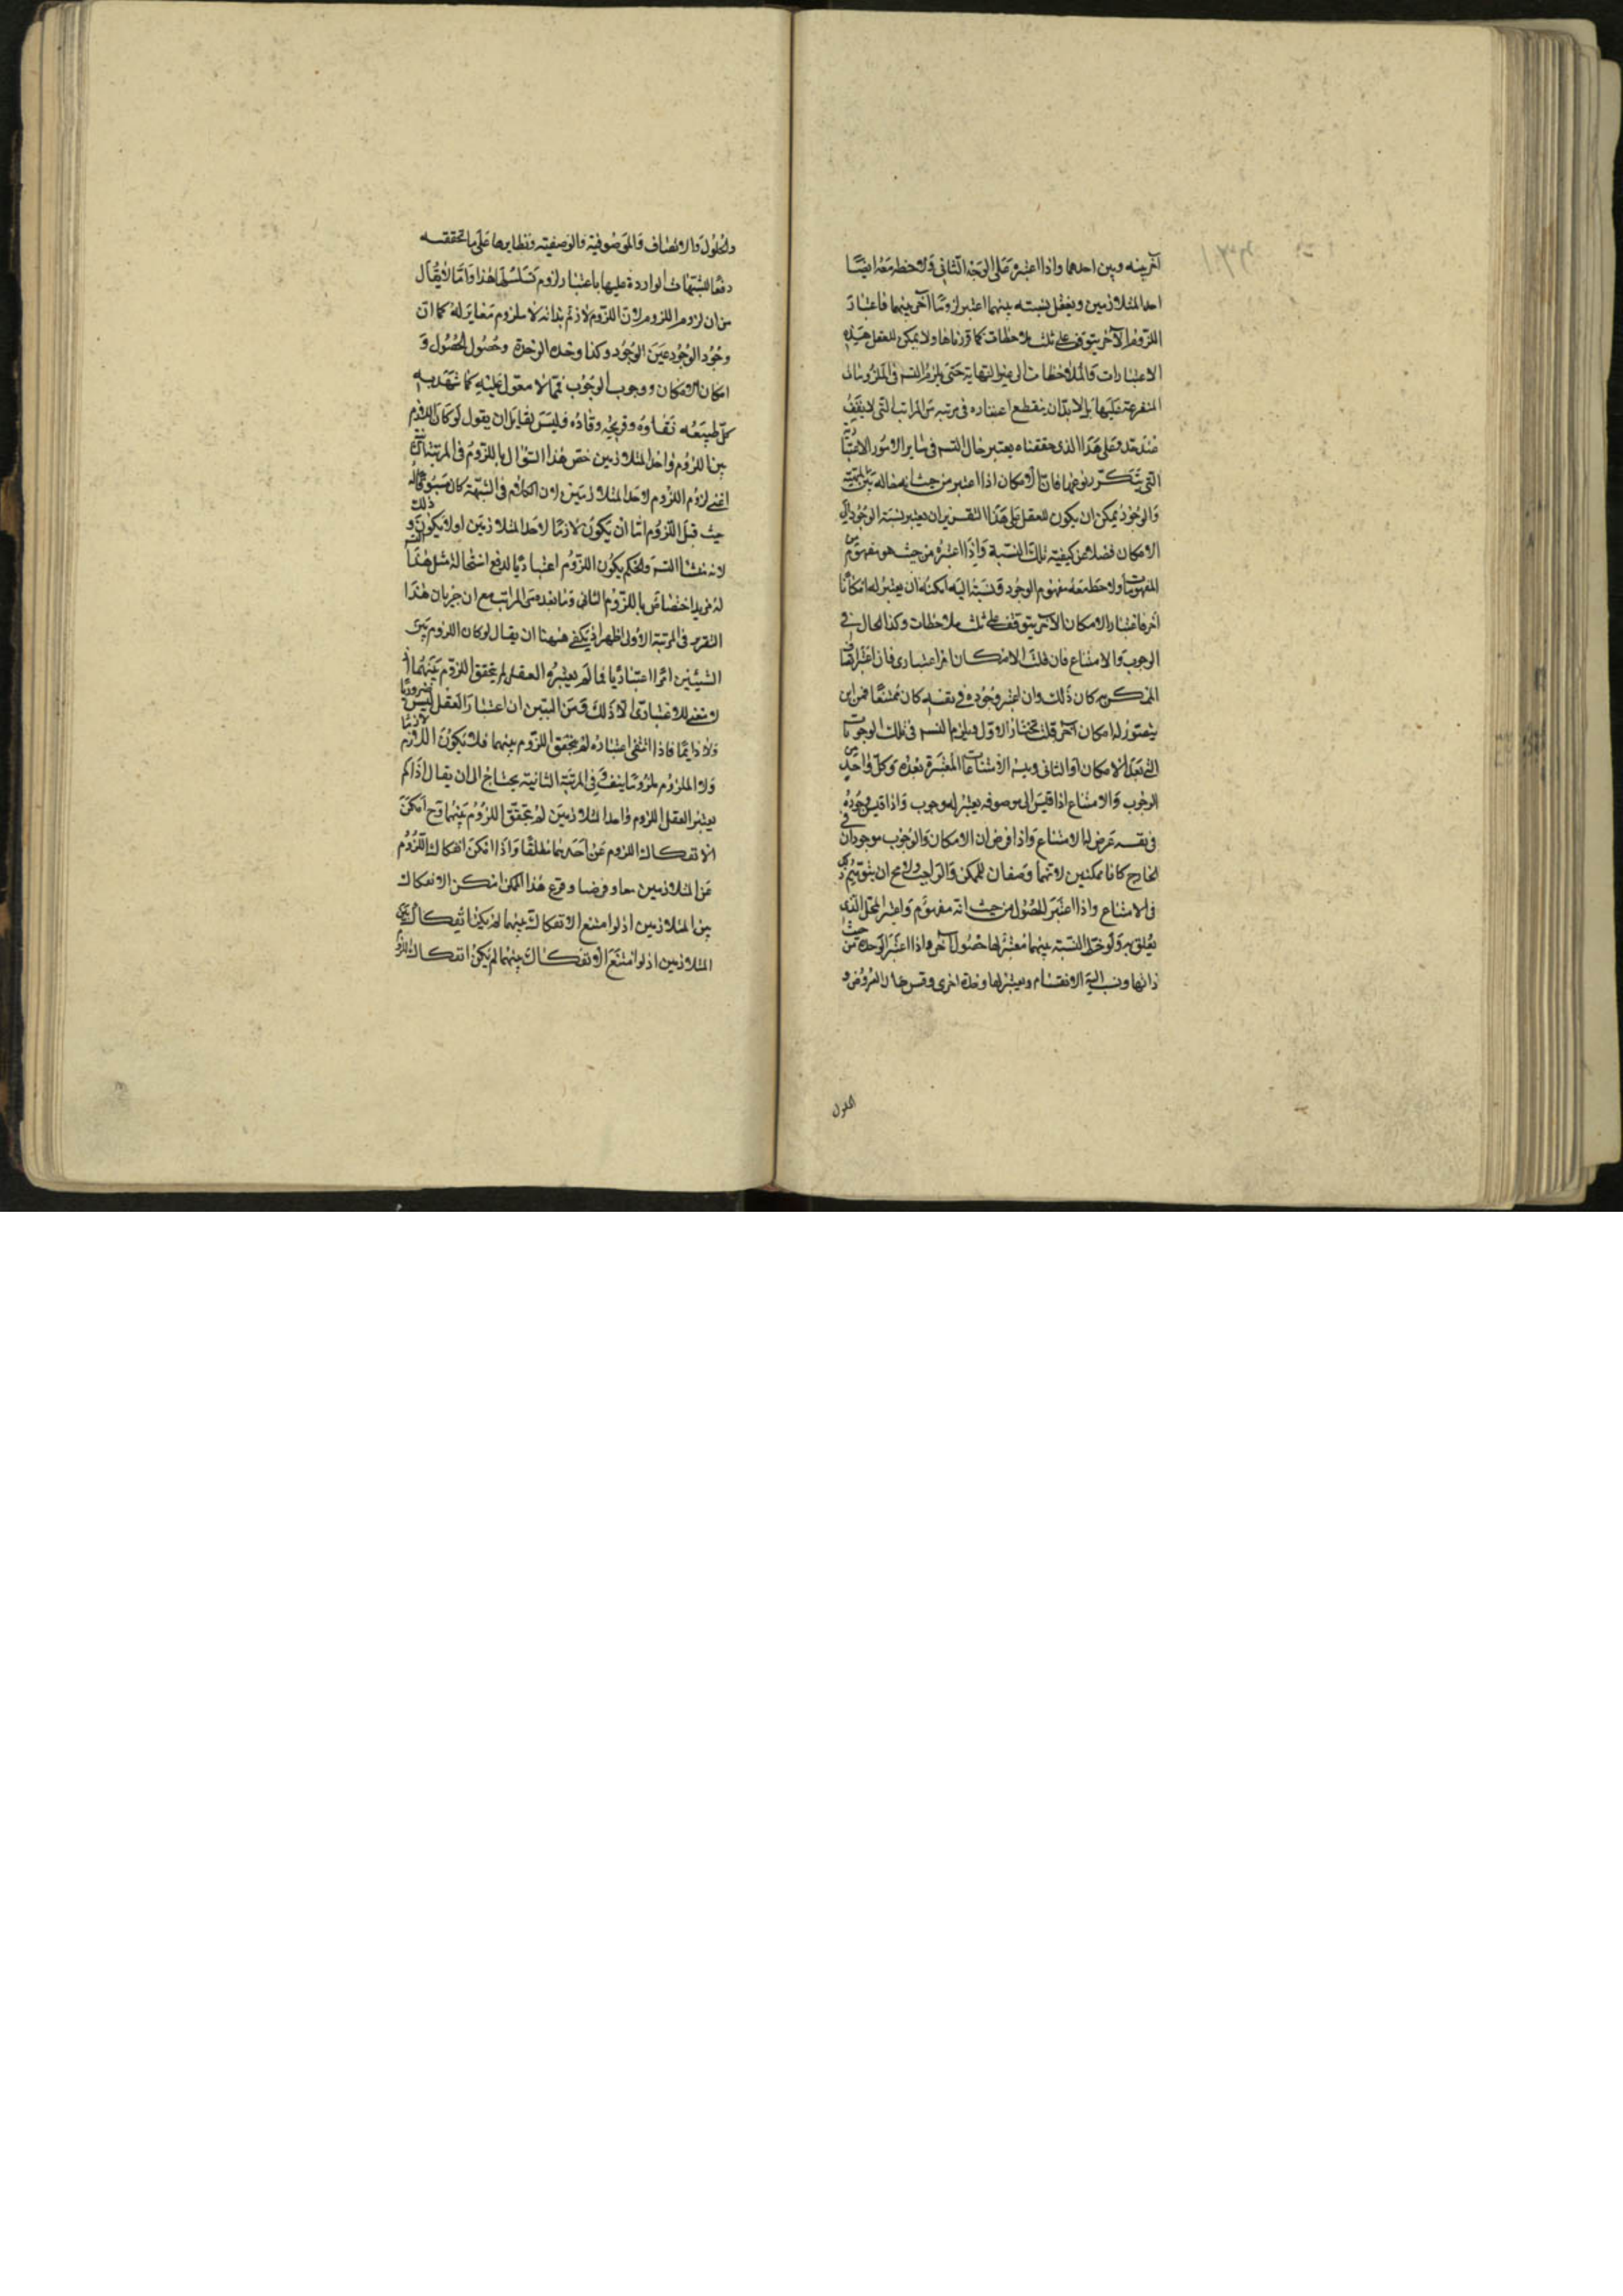 آخر بينه وبين احدهما واذا اعتبره على الوجه الثاني ولاحظ معه ايضا
احد المتلازمين ويعقل نسبته بينهما اعتبر لزوما آخر بينهما فاعتبار
اللزوم الآخر يتوقف على ثلث ملاحظات كما قررناها ولا يمكن للعقل هذه
الاعتبارات والملاحظات الى غير النهاية حتى يلزم التسم في اللزومات
المتفرعة عليها بل لابد ان ينقطع اعتباره في مرتبة من المراتب التي لا يقف
عند حد وعلى هذا الذي حققناه يعتبر حال التسم في ساير الامور الاعتبارية
التي يتكرر نوعها فان الامكان اذا اعتبر من حيث انه حالة بين المهية
والوجود يمكن ان يكون للعقل على هذا التقرير ان يعتبر نسبة الوجود الى
الامكان فضلا عن كيفية تلك النسبة واذا اعتبره من حيث هو مفهوم من
المفهومات ولاحظ معه مفهوم الوجود ونسبته اليه امكنه ان يعتبر له امكانا
آخر فاعتبار الامكان الآخر يتوقف على ثلث ملاحظات وكذا الحال في
الوجوب والامتناع فان قلت الامكان امر اعتباري فان اعتبر اتصاف
الممكن به كان ذلك وان اعتبر وجوده في نفسه كان ممتنعا فمن اين
يتصور له امكان آخر قلت نختار الاول ويلزم التسم في تلك الوجوبات
التي بعد الامكان او الثاني ويتسم الامتناعات المعتبرة بعده وكل واحد من
الوجوب والامتناع اذا قيس الى موصوفه يعتبر له وجوب واذا قيس وجوده
في نفسه عرض له الامتناع واذا فرض ان الامكان والوجوب موجودان في
الخارج كانا ممكنين لانهما وصفان للممكن والواجب ولا يصح ان يتوهم ذلك
في الامتناع واذا اعتبر الحصول من حيث انه مفهوم واعتبر المحل الذي
يتعلق به ولوحظ النسبة بينهما معتبر لها حصول آخر واذا اعتبر الوحدة من حيث
ذاتها ونسب اليه الانقسام ويعتبر لها وحدة اخرى وقس حال العروض و
الحلول
والحلول والاتصاف والموصوفية والوصفية ونظايرها على ما تحققته
دفعا للشبهات الواردة عليها باعتبار لزوم تسلسلها هذا واما لا يقال
من ان لزوم اللزوم لان اللزوم لازم بذاته لا ملزوم مغاير له كما ان
وجود الوجود عين الوجود وكذا وحدة الوحدة وحصول الحصول و
امكان الامكان ووجوب الوجوب فمما لا معول عليه كما شهد به
كل طبيعة نقادة وقريحة وقادة وليس لقايل ان يقول لو كان اللزوم
بين اللزوم واحد المتلازمين خص هذا السؤال باللزوم في المرتبة الثانية
اعني لزوم اللزوم لاحد المتلازمين لان الكلام في الشبهة كان مسوقا له
حيث قيل اللزوم اما ان يكون لازما لاحد المتلازمين او لا يكون وذلك
لانه منشأ التسم والحكم بكون اللزوم اعتباريا لدفع استحالة مثل هذا التسم
له مزيد اختصاص باللزوم الثاني وما بعده من المراتب مع ان جريان هذا
التقرير في المرتبة الاولى اظهر اذ يكفي ههنا ان يقال لو كان اللزوم بين
الشيئين امرا اعتباريا فما لم يعتبره العقل لم يتحقق اللزوم بينهما اذ
لا معنى للاعتباري الا ذلك ومن البين ان اعتبار العقل ليس ضروريا
ولا دايما فاذا انتفى اعتباره لم يتحقق اللزوم بينهما فلا يكون اللازم لازما
ولا الملزوم ملزوما بنفسه وفي المرتبة الثانية يحتاج الى ان يقال اذا لم
يعتبر العقل اللزوم واحد المتلازمين لم يتحقق اللزوم بينهما وح امكن
الانفكاك اللزوم عن احدهما مطلقا واذا امكن انفكاك اللزوم
عن المتلازمين معا وفرضنا وقوع هذا الممكن امكن الانفكاك
بين المتلازمين اذ لو امتنع الانفكاك بينهما لم يكن انفكاك بين
المتلازمين اذ لو امتنع الانفكاك بينهما لم يكن انفكاك اللزوم